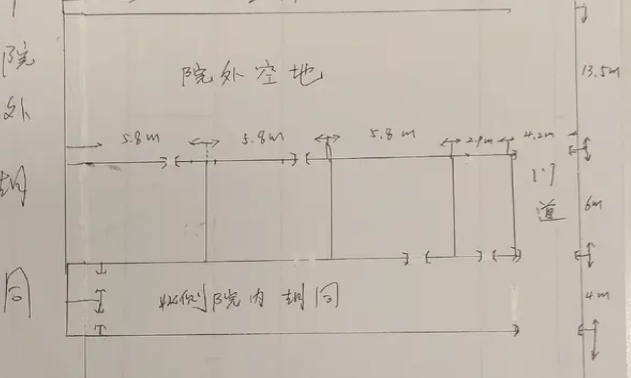 院外胡同
院外空地
13.5m
5.8m
5.8m
5.8m
2.9m
4.2m
门道
6m
侧院内胡同
4m